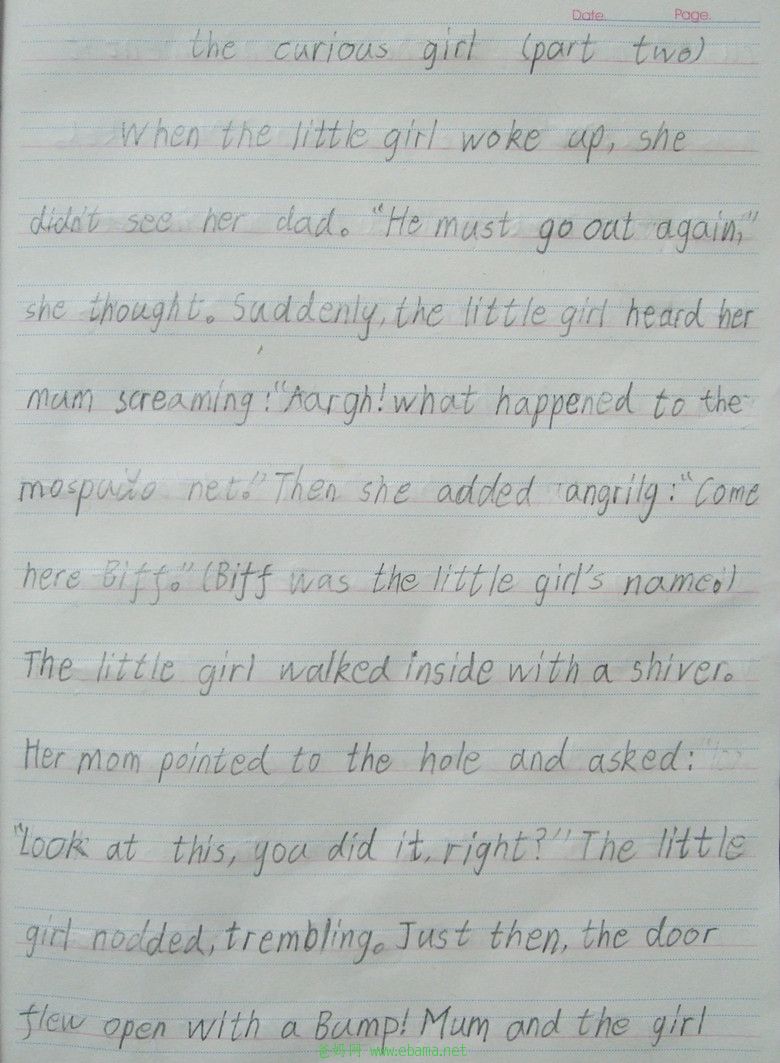 Date. Page.
the curious girl (part two)
When the little girl woke up, she
didn't see her dad. "He must go out again,"
she thought. Suddenly, the little girl heard her
mum screaming: "Aargh! what happened to the
mosquito net." Then she added angrily: "Come
here Biff." (Biff was the little girl's name.)
The little girl walked inside with a shiver.
Her mom pointed to the hole and asked:
"Look at this, you did it, right?" The little
girl nodded, trembling. Just then, the door
flew open with a Bump! Mum and the girl
爸奶网 www.ebama.net